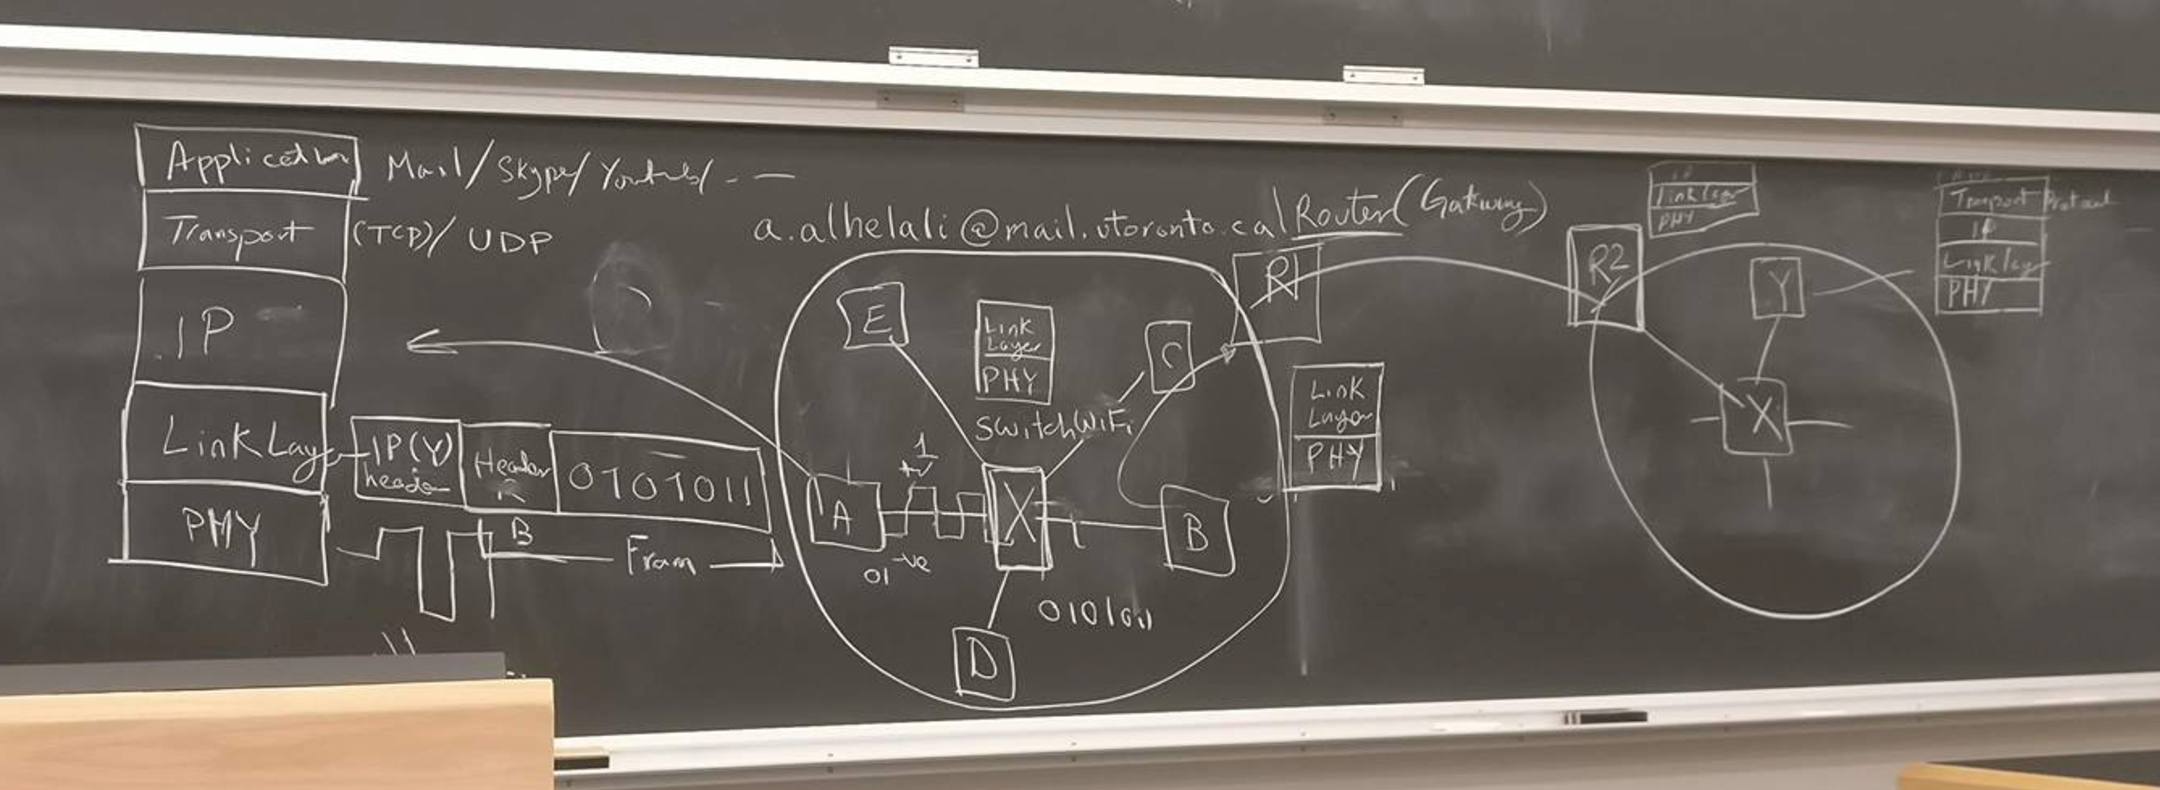 Application Mail/Skype/Youtube/
Transport (TCP)/ UDP
IP
Link Layer
PHY
IP(Y) header
Header
B
0101011
Fram
a.alhelali@mail.utoronto.ca
Router (Gateway)
E
Link Layer
PHY
Switch WiFi
C
A
1
+ve
-ve
01
X
B
D
R1
Link Layer
PHY
R2
IP
Link Layer
PHY
Y
X
Transport Protocol
IP
Link layer
PHY